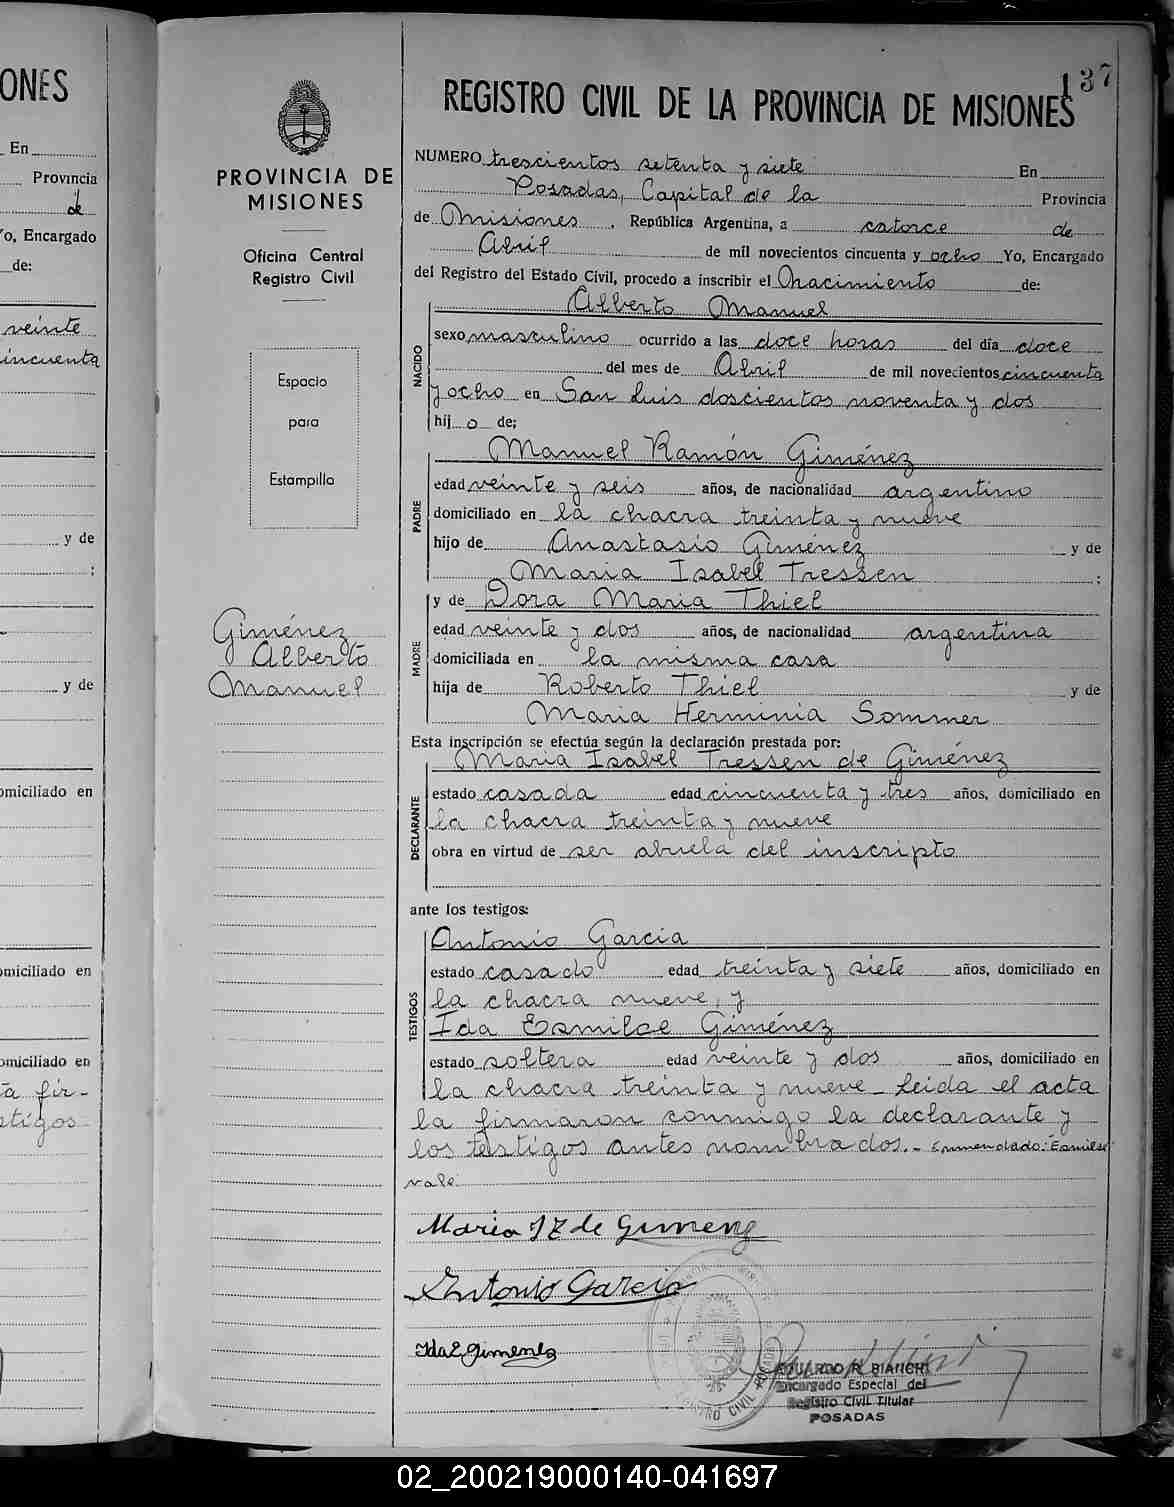 ONES
En
Provincia
de
Yo, Encargado
de:
veinte
cincuenta
y de
;
y de
omiciliado en
omiciliado en
omiciliado en
ta fir-
stigos
PROVINCIA DE
MISIONES
Oficina Central
Registro Civil
Espacio
para
Estampilla
Giménez
Alberto
Manuel
137
REGISTRO CIVIL DE LA PROVINCIA DE MISIONES
NUMERO trescientos setenta y siete En
Posadas, Capital de la Provincia
de Misiones, República Argentina, a catorce de
Abril de mil novecientos cincuenta y ocho Yo, Encargado
del Registro del Estado Civil, procedo a inscribir el Nacimiento de:
NACIDO
Alberto Manuel
sexo masculino ocurrido a las doce horas del día doce
del mes de Abril de mil novecientos cincuenta
y ocho en San Luis doscientos noventa y dos
hij o de;
PADRE
Manuel Ramón Giménez
edad veinte y seis años, de nacionalidad argentino
domiciliado en la chacra treinta y nueve
hijo de Anastasio Giménez y de
Maria Isabel Tressen ;
MADRE
y de Dora Maria Thiel
edad veinte y dos años, de nacionalidad argentina
domiciliada en la misma casa
hija de Roberto Thiel y de
Maria Herminia Sommer
Esta inscripción se efectúa según la declaración prestada por:
DECLARANTE
Maria Isabel Tressen de Giménez
estado casada edad cincuenta y tres años, domiciliado en
la chacra treinta y nueve
obra en virtud de ser abuela del inscripto
ante los testigos:
TESTIGOS
Antonio Garcia
estado casado edad treinta y siete años, domiciliado en
la chacra nueve, y
Ida Esmilce Giménez
estado soltera edad veinte y dos años, domiciliado en
la chacra treinta y nueve_ Leida el acta
la firmaron conmigo la declarante y
los testigos antes nombrados.- Enmendado: Esmilce
vale.
Maria I T de Gimenez
Antonio Garcia
Ida E Gimenez
EDUARDO R. BIANCHI
Encargado Especial del
Registro Civil Titular
POSADAS
02_200219000140-041697